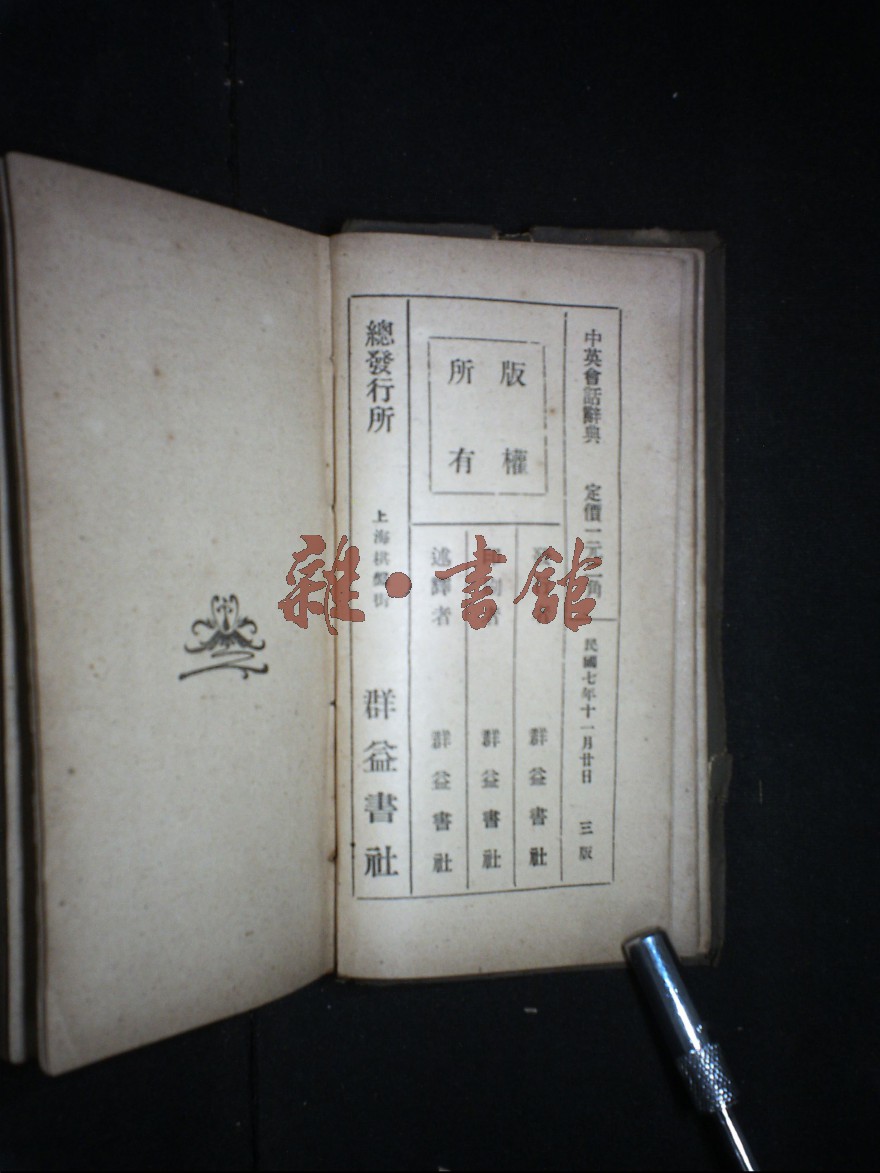 中英會話辭典
定價一元二角
民國七年十一月廿日
三版
版權
所有
群益書社
印刷者
群益書社
述譯者
群益書社
總發行所
上海棋盤街
群益書社
雜·書館